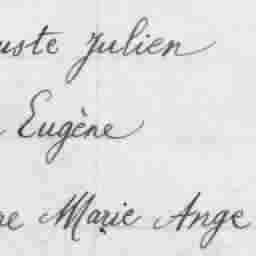 uste Julien
Eugène
re Marie Ange